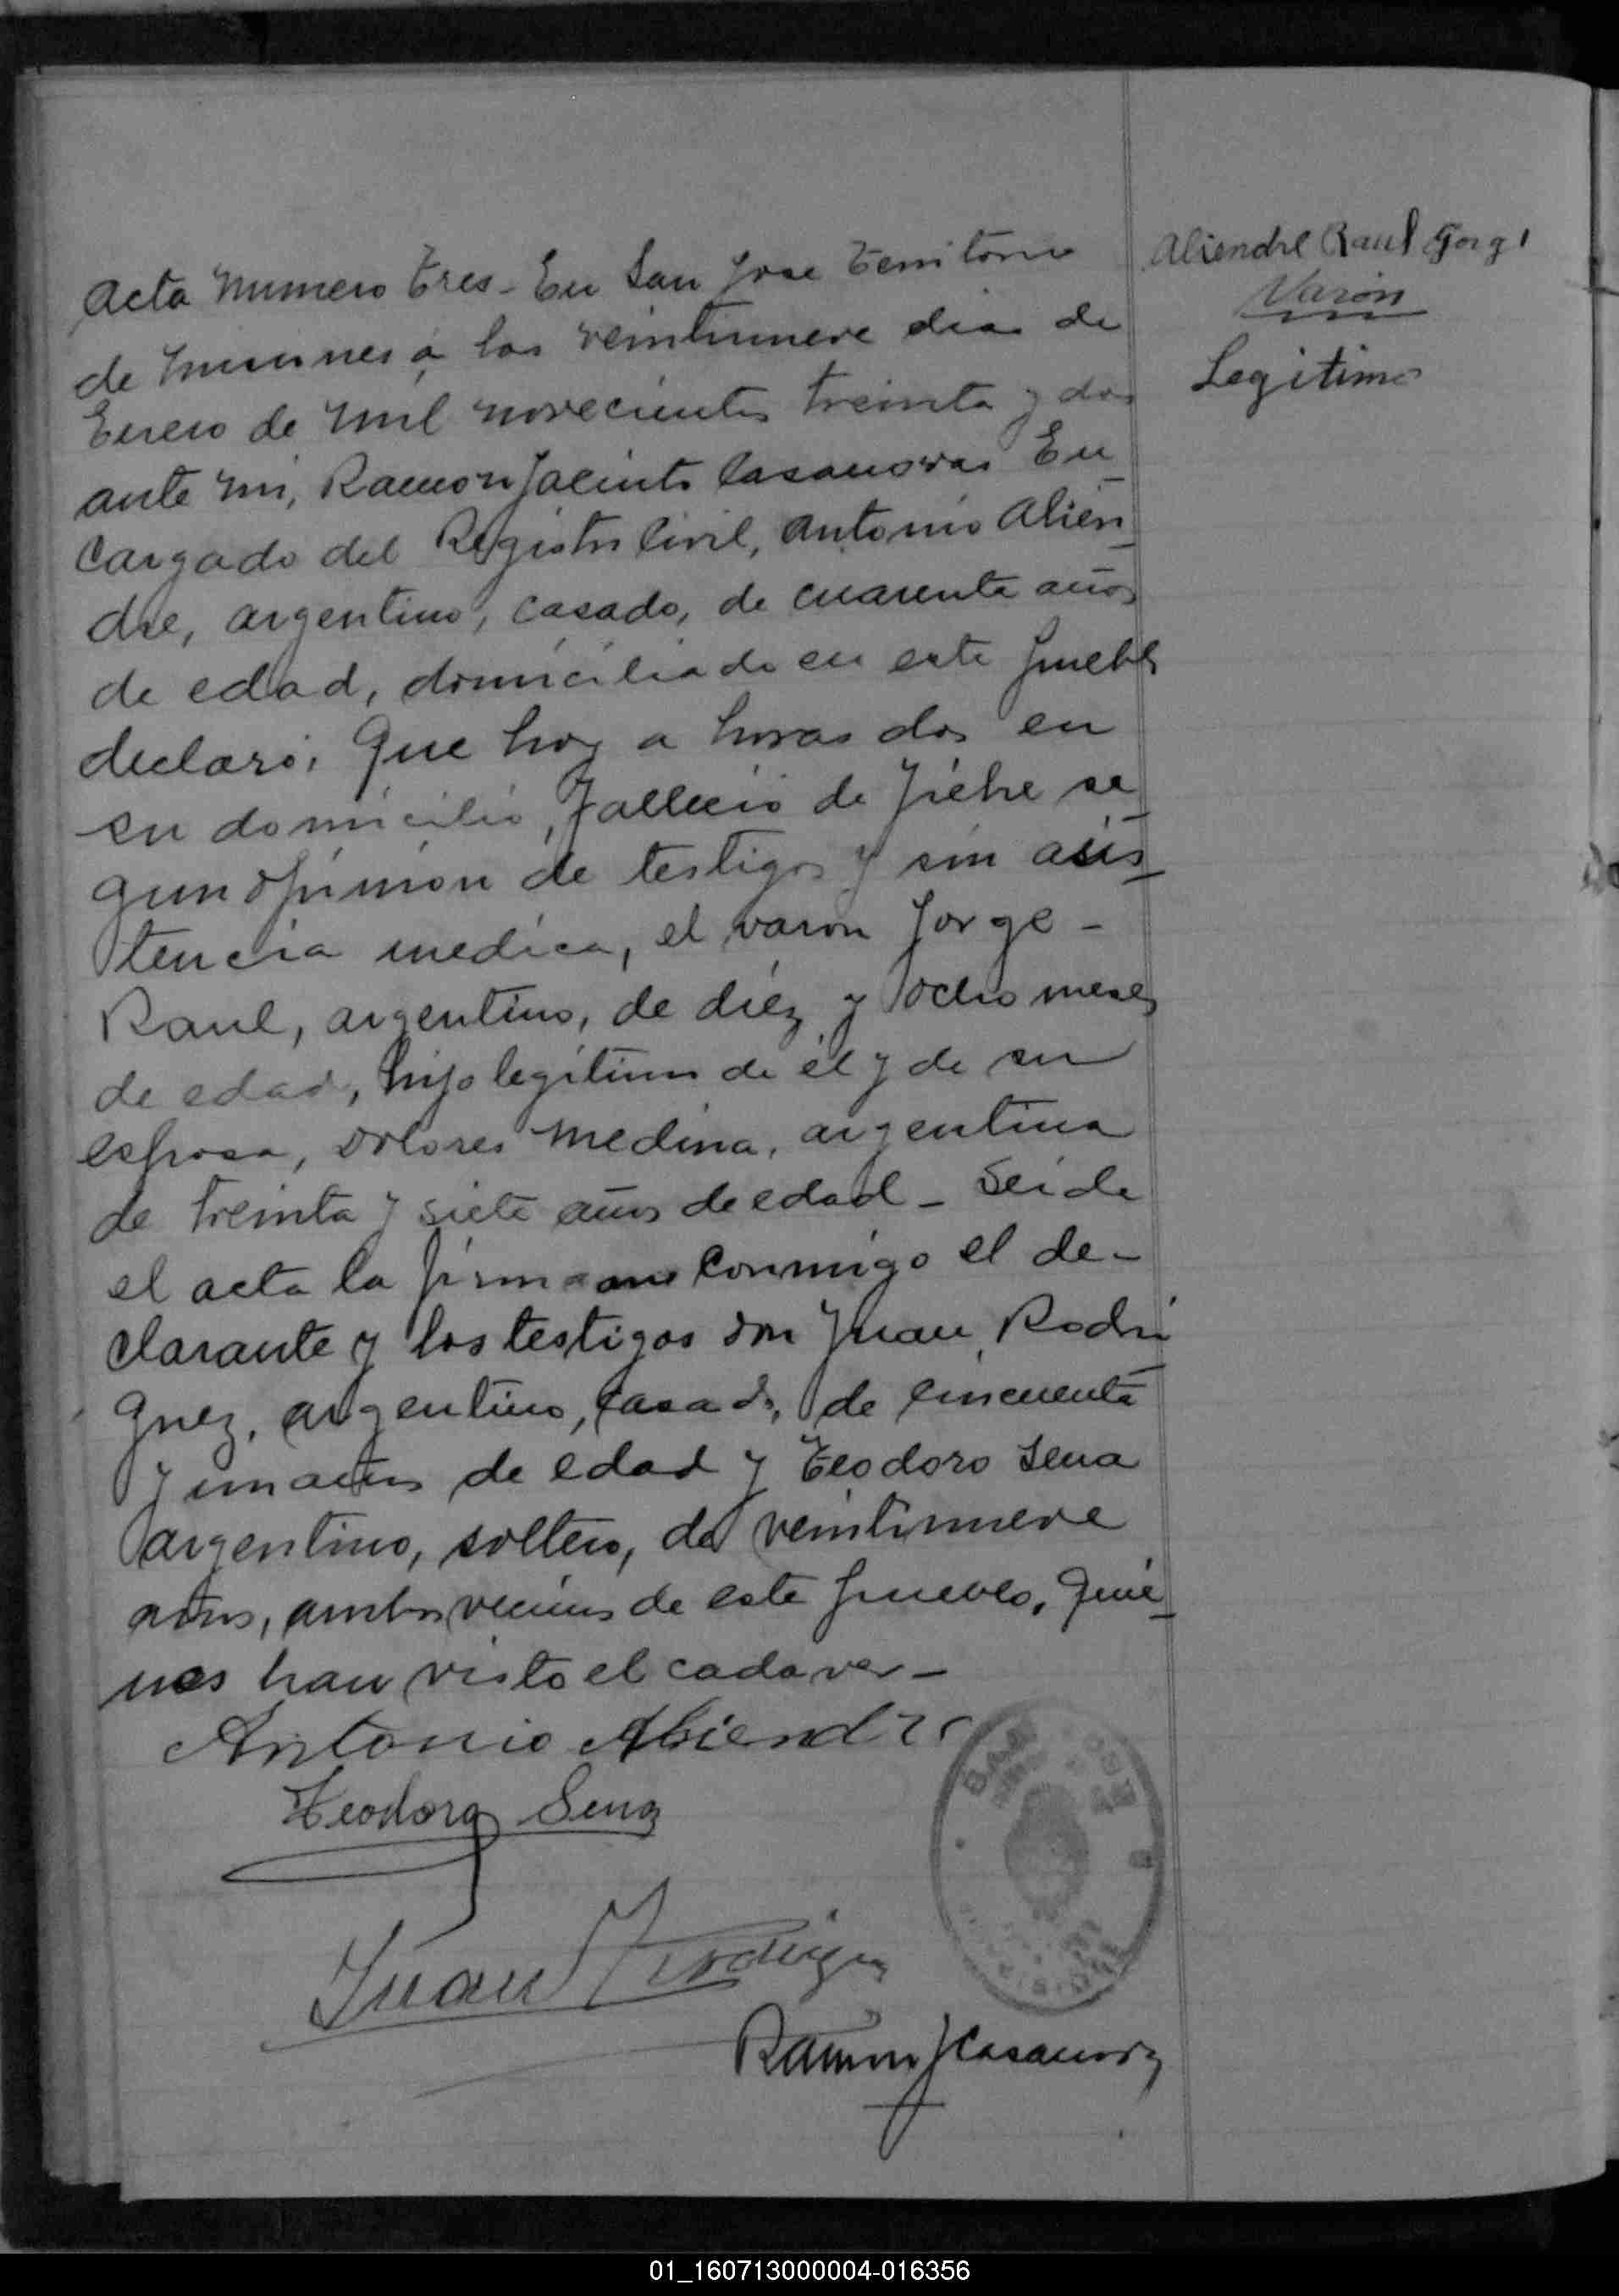 Acta Numero tres - En San Jose territorio
de Misiones á los veintinueve dias de
Enero de mil novecientos treinta y dos
ante mi, Ramon Jacinto Casanovas En
cargado del Registro Civil, Antonio Alien
dre, argentino, casado, de cuarenta años
de edad, domiciliado en este pueblo
declaró: Que hoy a horas dos en
su domicilio, falleció de fiebre se
gun opinion de testigos y sin asis
tencia medica, el varon Jorge -
Raul, argentino, de diez y ocho meses
de edad, hijo legitimo de él y de su
esposa, Dolores Medina, argentina
de treinta y siete años de edad - Leida
el acta la firmaron conmigo el de-
clarante y los testigos don Juan Rodri
guez, argentino, casado, de cincuenta
y un años de edad y Teodoro Sena
argentino, soltero, de veintinueve
años, ambos vecinos de este pueblo, quie
nes han visto el cadaver -
Antonio Aliendre
Teodoro Sena
Juan Rodriguez
Ramon J Casanovas
Aliendre Raul Jorge
Varón
Legitimo
SAN JOSE
MISIONES
01_160713000004-016356